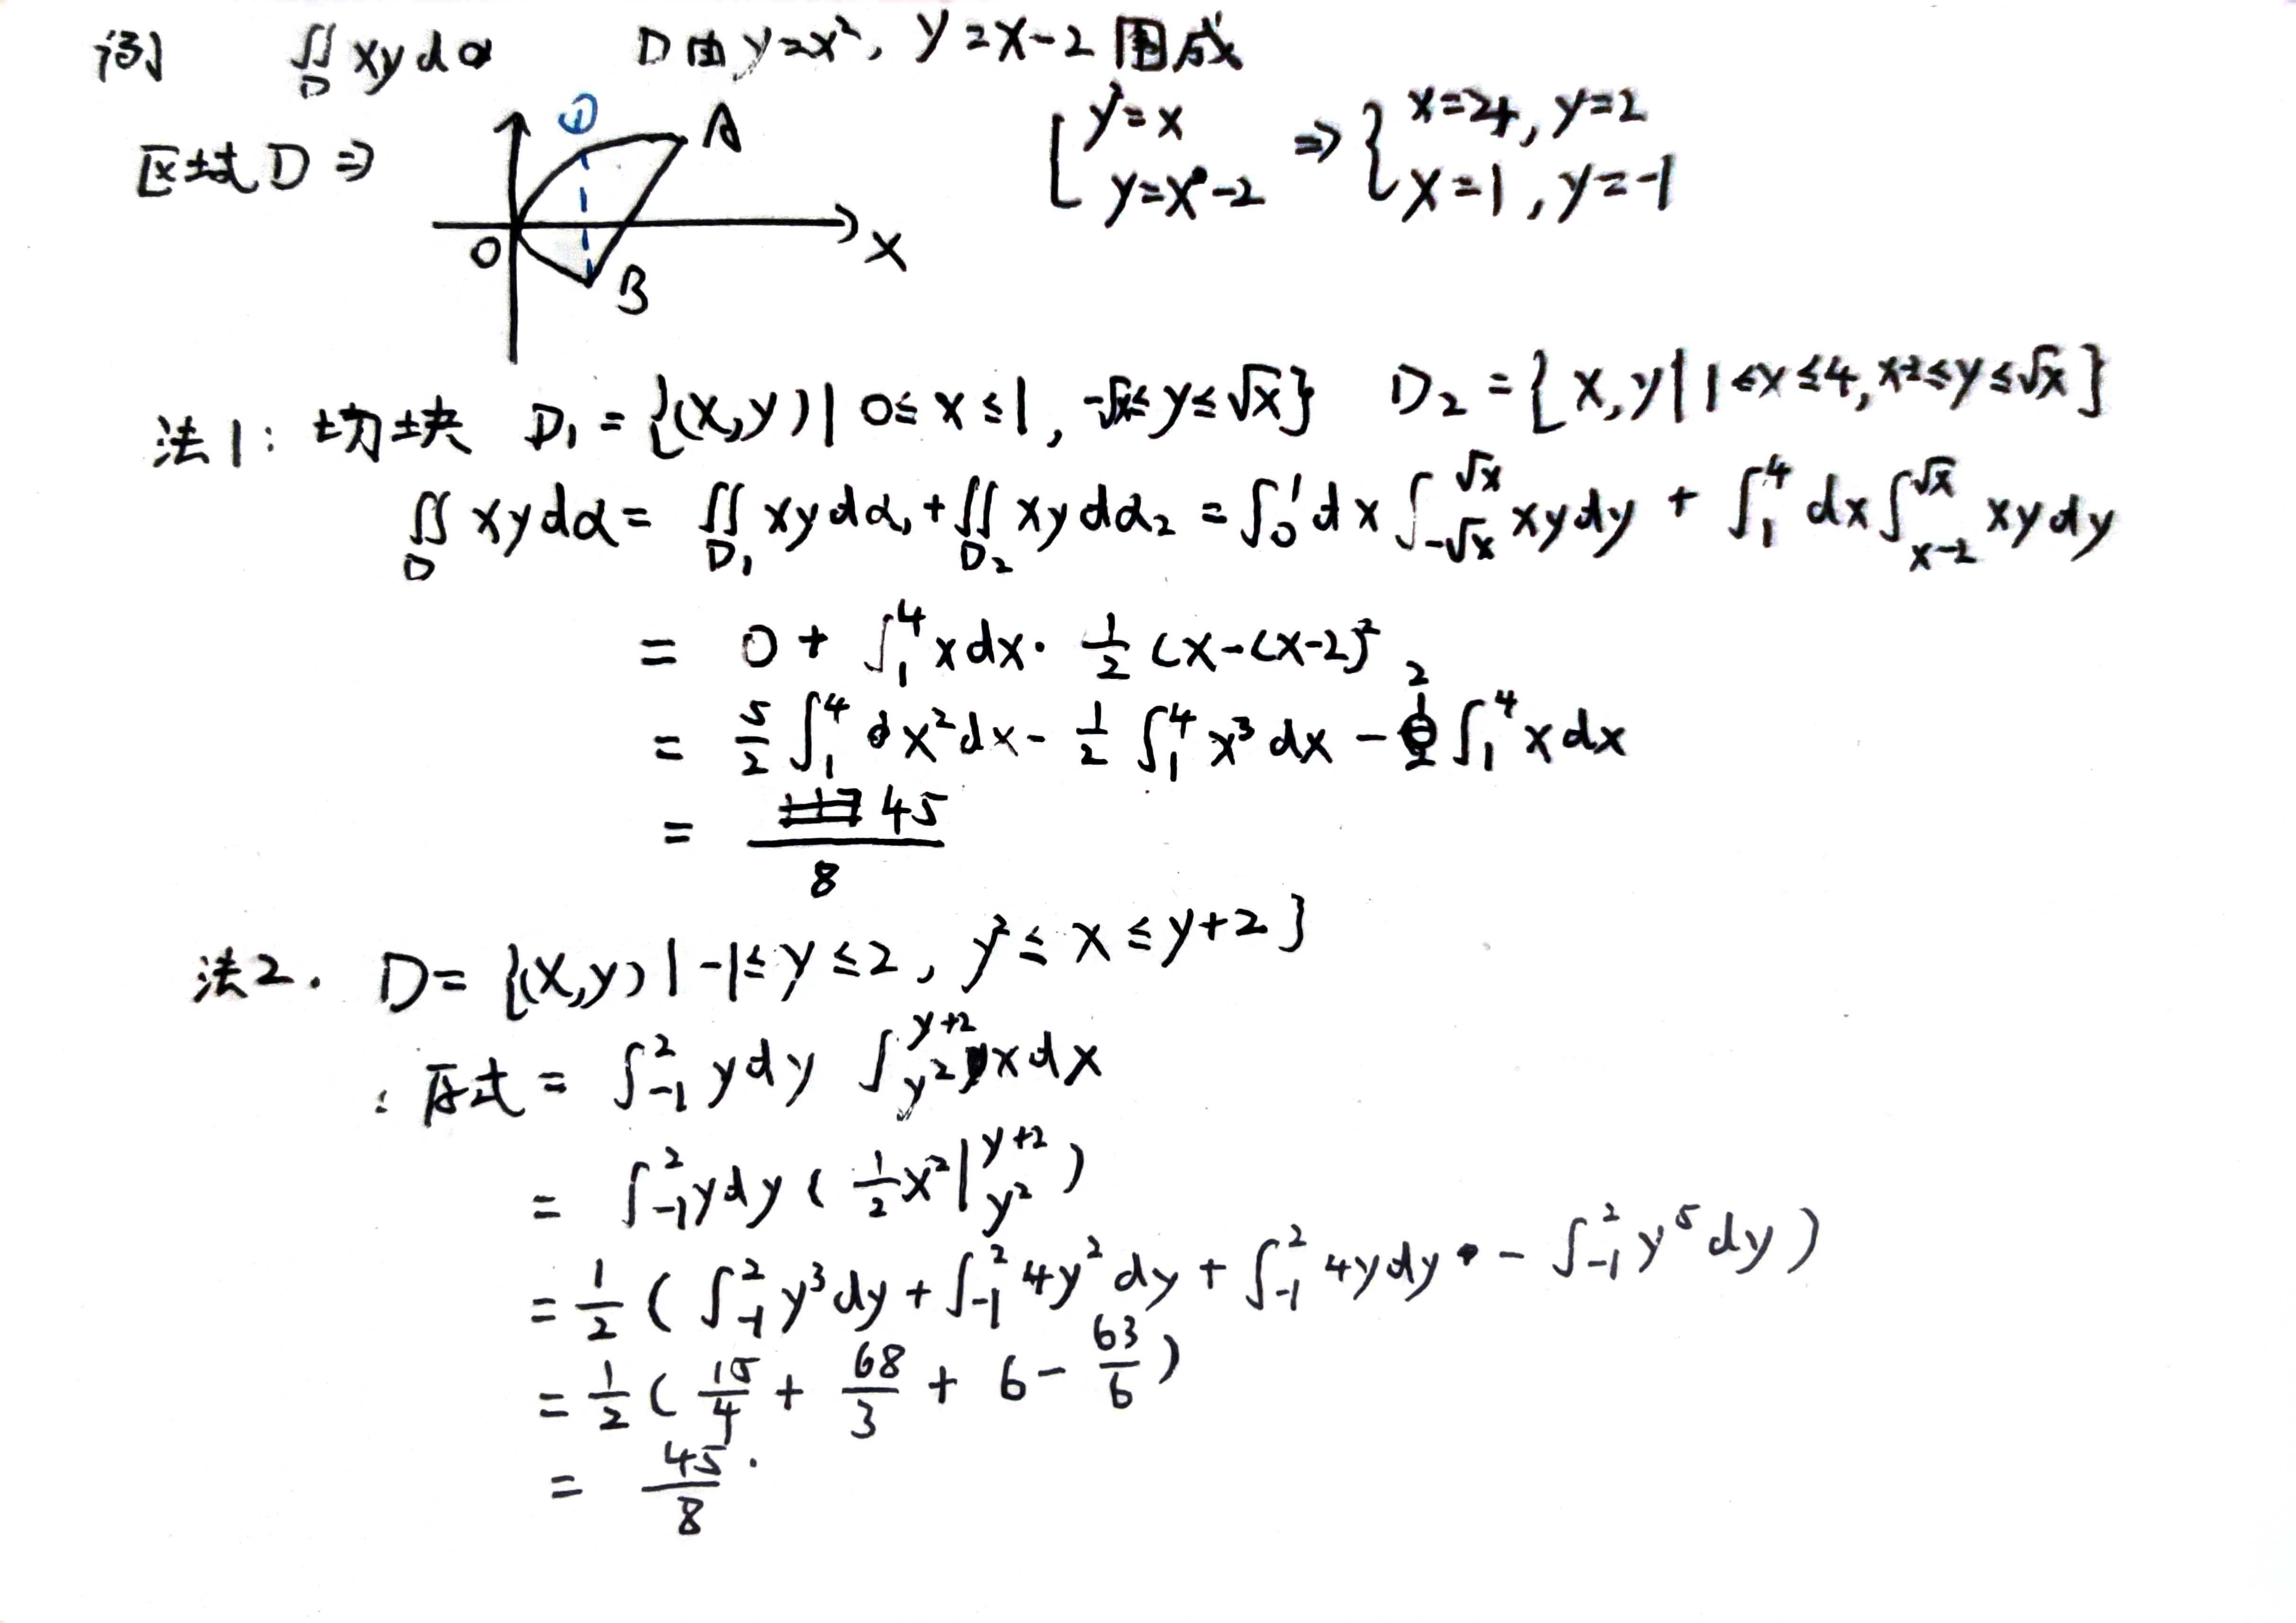 例 ∬_D xydα D由y=x², y=x-2围成
区域D⇒ ① A O B x
{y²=x, y=x-2 ⇒ {x=4, y=2; x=1, y=-1
法1: 切块 D₁={(x,y)| 0≤x≤1, -√x≤y≤√x} D₂={x,y|1≤x≤4, x-2≤y≤√x}
∬_D xydα = ∬_D₁ xydα₁+∬_D₂ xydα₂ = ∫₀¹dx∫_{-√x}^{√x}xydy + ∫₁⁴dx∫_{x-2}^{√x}xydy
= 0 + ∫₁⁴xdx· ½(x-(x-2)²
= 5/2 ∫₁⁴ x²dx - ½∫₁⁴x³dx - 2∫₁⁴xdx
= 45/8
法2. D={(x,y)|-1≤y≤2, y²≤x≤y+2}
: 原式= ∫_{-1}^{2} ydy ∫_{y²}^{y+2} xdx
= ∫_{-1}^{2}ydy(½x²|_{y²}^{y+2})
= ½(∫_{-1}^{2}y³dy+∫_{-1}^{2}4y²dy+∫_{-1}^{2}4ydy - ∫_{-1}^{2}y⁵dy)
= ½(15/4 + 68/3 + 6 - 63/6)
= 45/8.